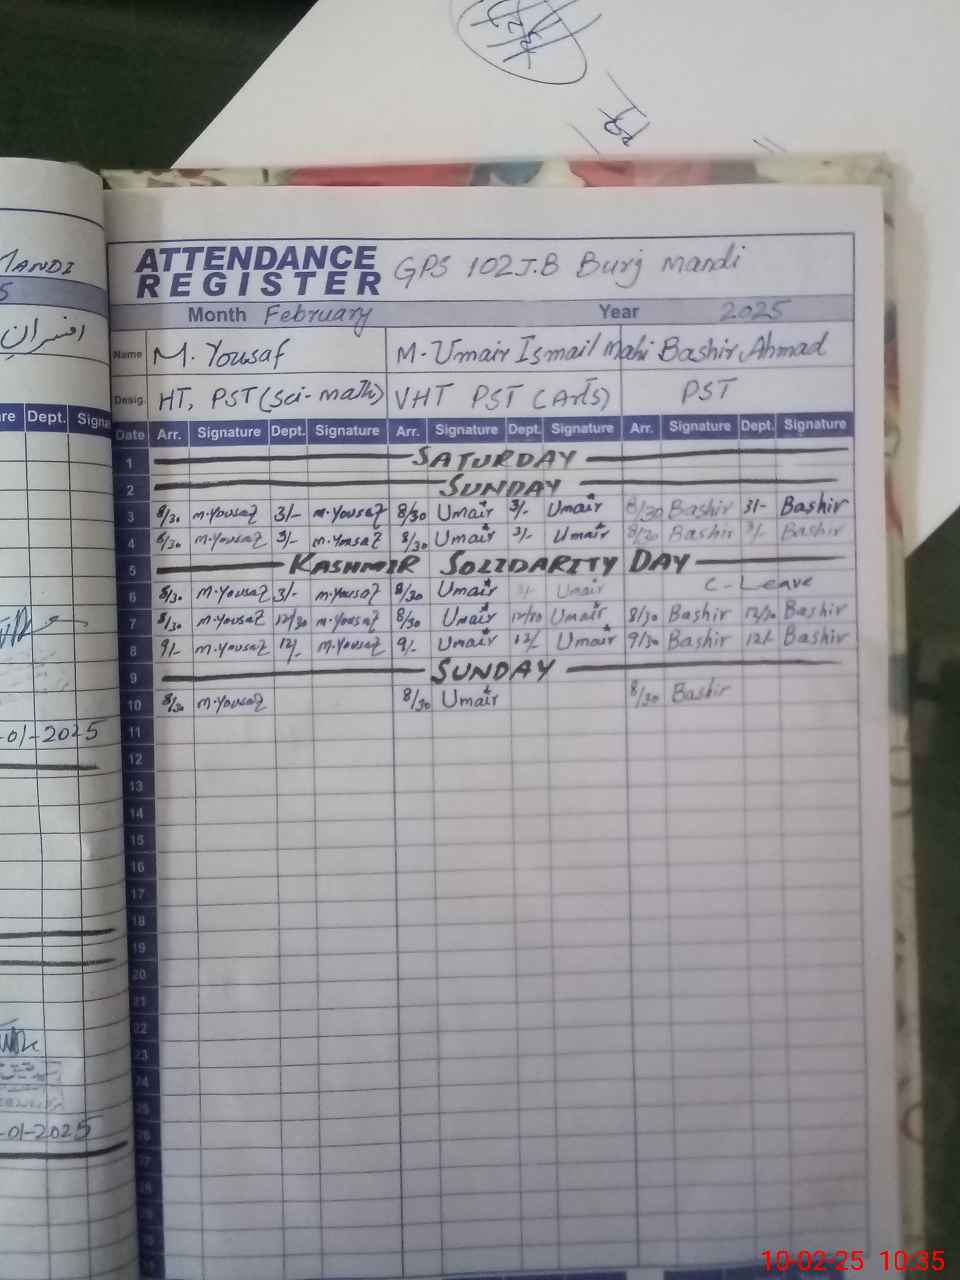 MANDI
5
افسران
Dept. Signa
-01-2025
-01-2025
ATTENDANCE REGISTER GPS 102 J.B Burj Mandi
Month February Year 2025
Name M. Yousaf M. Umair Ismail Mahi Bashir Ahmad
Desig. HT, PST (Sci-math) VHT PST (Arts) PST
Date Arr. Signature Dept. Signature Arr. Signature Dept. Signature Arr. Signature Dept. Signature
1 SATURDAY
2 SUNDAY
3 8/30 M.Yousaf 3/- M.Yousaf 8/30 Umair 3/- Umair 8/30 Bashir 3/- Bashir
4 8/30 M.Yousaf 3/- M.Yousaf 8/30 Umair 3/- Umair 8/30 Bashir 3/- Bashir
5 KASHMIR SOLIDARITY DAY
6 8/30 M.Yousaf 3/- M.Yousaf 8/30 Umair 3/- Umair C-Leave
7 8/30 M.Yousaf 12/30 M.Yousaf 8/30 Umair 12/30 Umair 8/30 Bashir 12/30 Bashir
8 9/- M.Yousaf 12/- M.Yousaf 9/- Umair 12/- Umair 9/30 Bashir 12/- Bashir
9 SUNDAY
10 8/30 M.Yousaf 8/30 Umair 8/30 Bashir
11
12
13
14
15
16
17
18
19
20
21
22
23
24
25
26
27
28
10-02-25 10:35